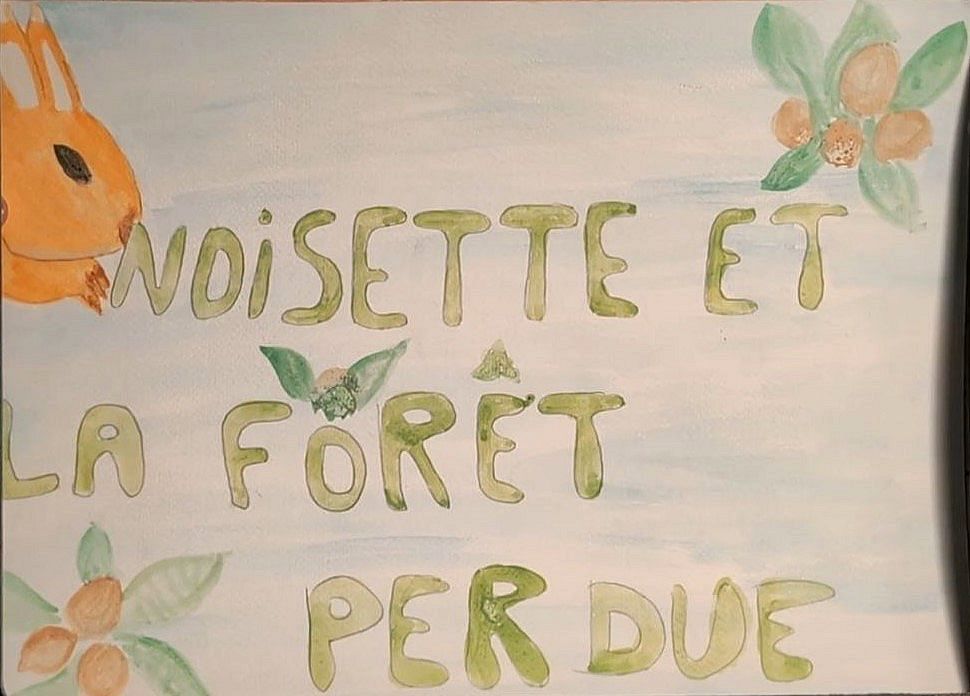 NOiSETTE ET
LA FORÊT
PERDUE